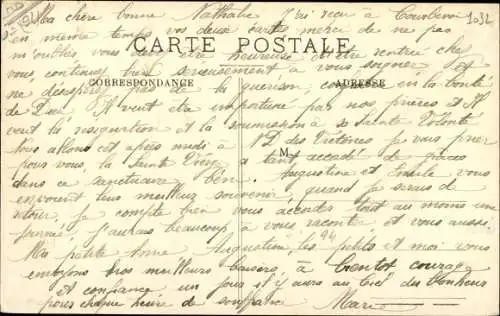 1032
Ma chère bonne Nathalie J'ai reçu à Courbevoie
en même temps vos deux cartes merci de ne pas
m'oublier vous devez être heureuse d'être rentrée chez
CARTE POSTALE
vous, continuez bien sérieusement à vous soigner
CORRESPONDANCE
ADRESSE
ne désespérez pas de la guérison, en la bonté
de Dieu, Il veut être importuné par nos prières et Il
veut la résignation et la soumission à sa Sainte Volonté
Nous allons cet après midi à N. D. des Victoires je vais prier
M
pour vous, la Sainte Vierge a tant accordé de grâces
dans ce sanctuaire béni. Augustine et Émile vous
envoient leur meilleur souvenir quand je serais de
retour, je compte bien vous accorder tout au moins une
journée, j'aurais beaucoup à vous raconter et vous aussi.
Ma petite Anne Augustine, les petits et moi vous
envoyons nos meilleurs baisers, à bientôt courage
et confiance un jour il y aura au Ciel du bonheur
pour chaque heure de souffrance Marie